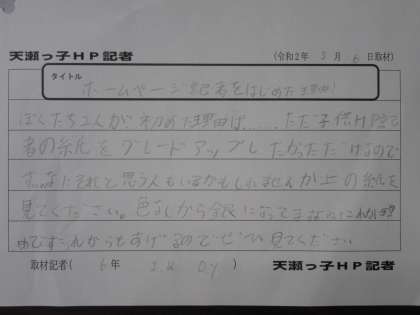 天瀬っ子HP記者
(令和2年 3月 6日取材)
タイトル
ホームページ記者をはじめた理由!
ぼくたち2人が初めた理由は……ただ子供HP記
者の紙をグレードアップしたかっただけなので
それと思う人もいるかもしれませんが上の紙を
見てください。色なしから金になってますこれが理
由ですこれからもあげるのでぜひ見てください
取材記者( 6年 S.K O.Y )
天瀬っ子HP記者